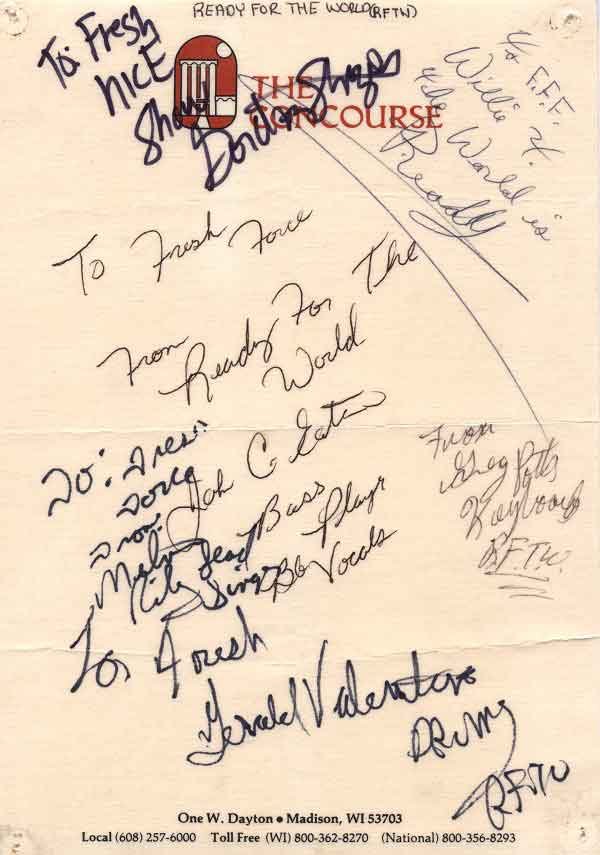 READY FOR THE WORLD (RFTW)
To: Fresh
NICE
Gordon Strozier
THE
CONCOURSE
To F.F.F.
Willie H.
the World is
Ready
To Fresh Force
From Ready For The
World
John C Eaton
Bass Player
BG Vocals
To: Fresh
Force
From:
Melvin
Riley Lead
Singer
From
Greg Potts
Keyboards
R.F.T.W.
To: Fresh
Gerald Valentine
DRUMS
RFTW
One W. Dayton • Madison, WI 53703
Local (608) 257-6000 Toll Free (WI) 800-362-8270 (National) 800-356-8293